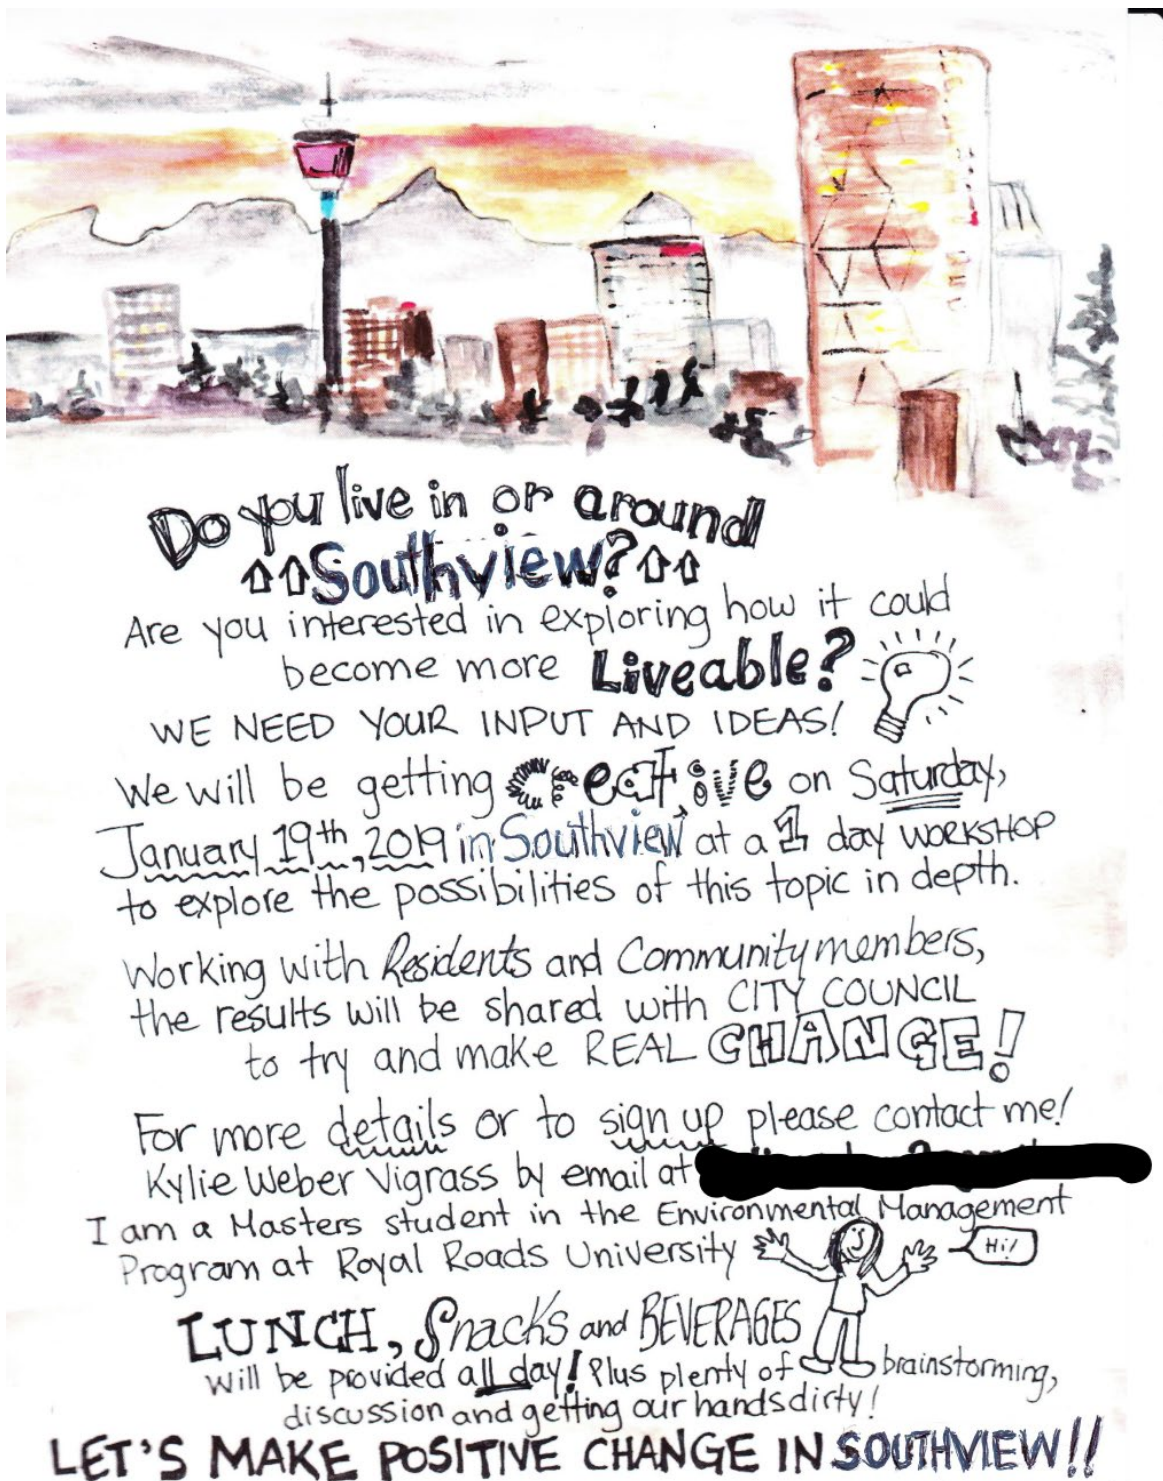 Do you live in or around
Southview?
Are you interested in exploring how it could
become more Liveable?
WE NEED YOUR INPUT AND IDEAS!
We will be getting creative on Saturday,
January 19th, 2019 in Southview at a 1 day WORKSHOP
to explore the possibilities of this topic in depth.
Working with Residents and Community members,
the results will be shared with CITY COUNCIL
to try and make REAL CHANGE!
For more details or to sign up please contact me!
Kylie Weber Vigrass by email at
I am a Masters student in the Environmental Management
Program at Royal Roads University
Hi!
LUNCH, Snacks and BEVERAGES
will be provided all day! Plus plenty of brainstorming,
discussion and getting our hands dirty!
LET'S MAKE POSITIVE CHANGE IN SOUTHVIEW!!